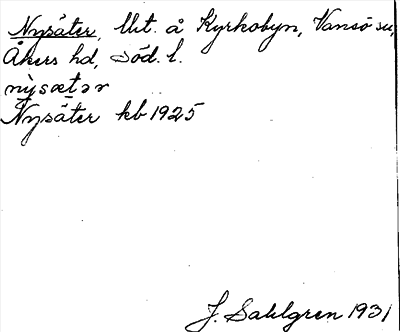 Nysäter, lht. å Kyrkobyn, Vansö sn,
Åkers hd, Söd. l.
nỳsætər
Nysäter kb 1925
J. Sahlgren 1931